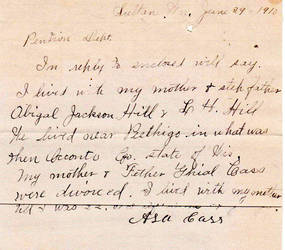 Sultan Wa. June 29 - 1910
Pension Dept.
In reply to enclosed will say.
I lived with my mother & step father
Abigal Jackson Hill & L. H. Hill
We lived near Peshtigo in what was
then Oconto Co. state of Wis,
My mother & Father Ethial Cass
were divorced. I lived with my mother
till I was 22.
Asa Cass